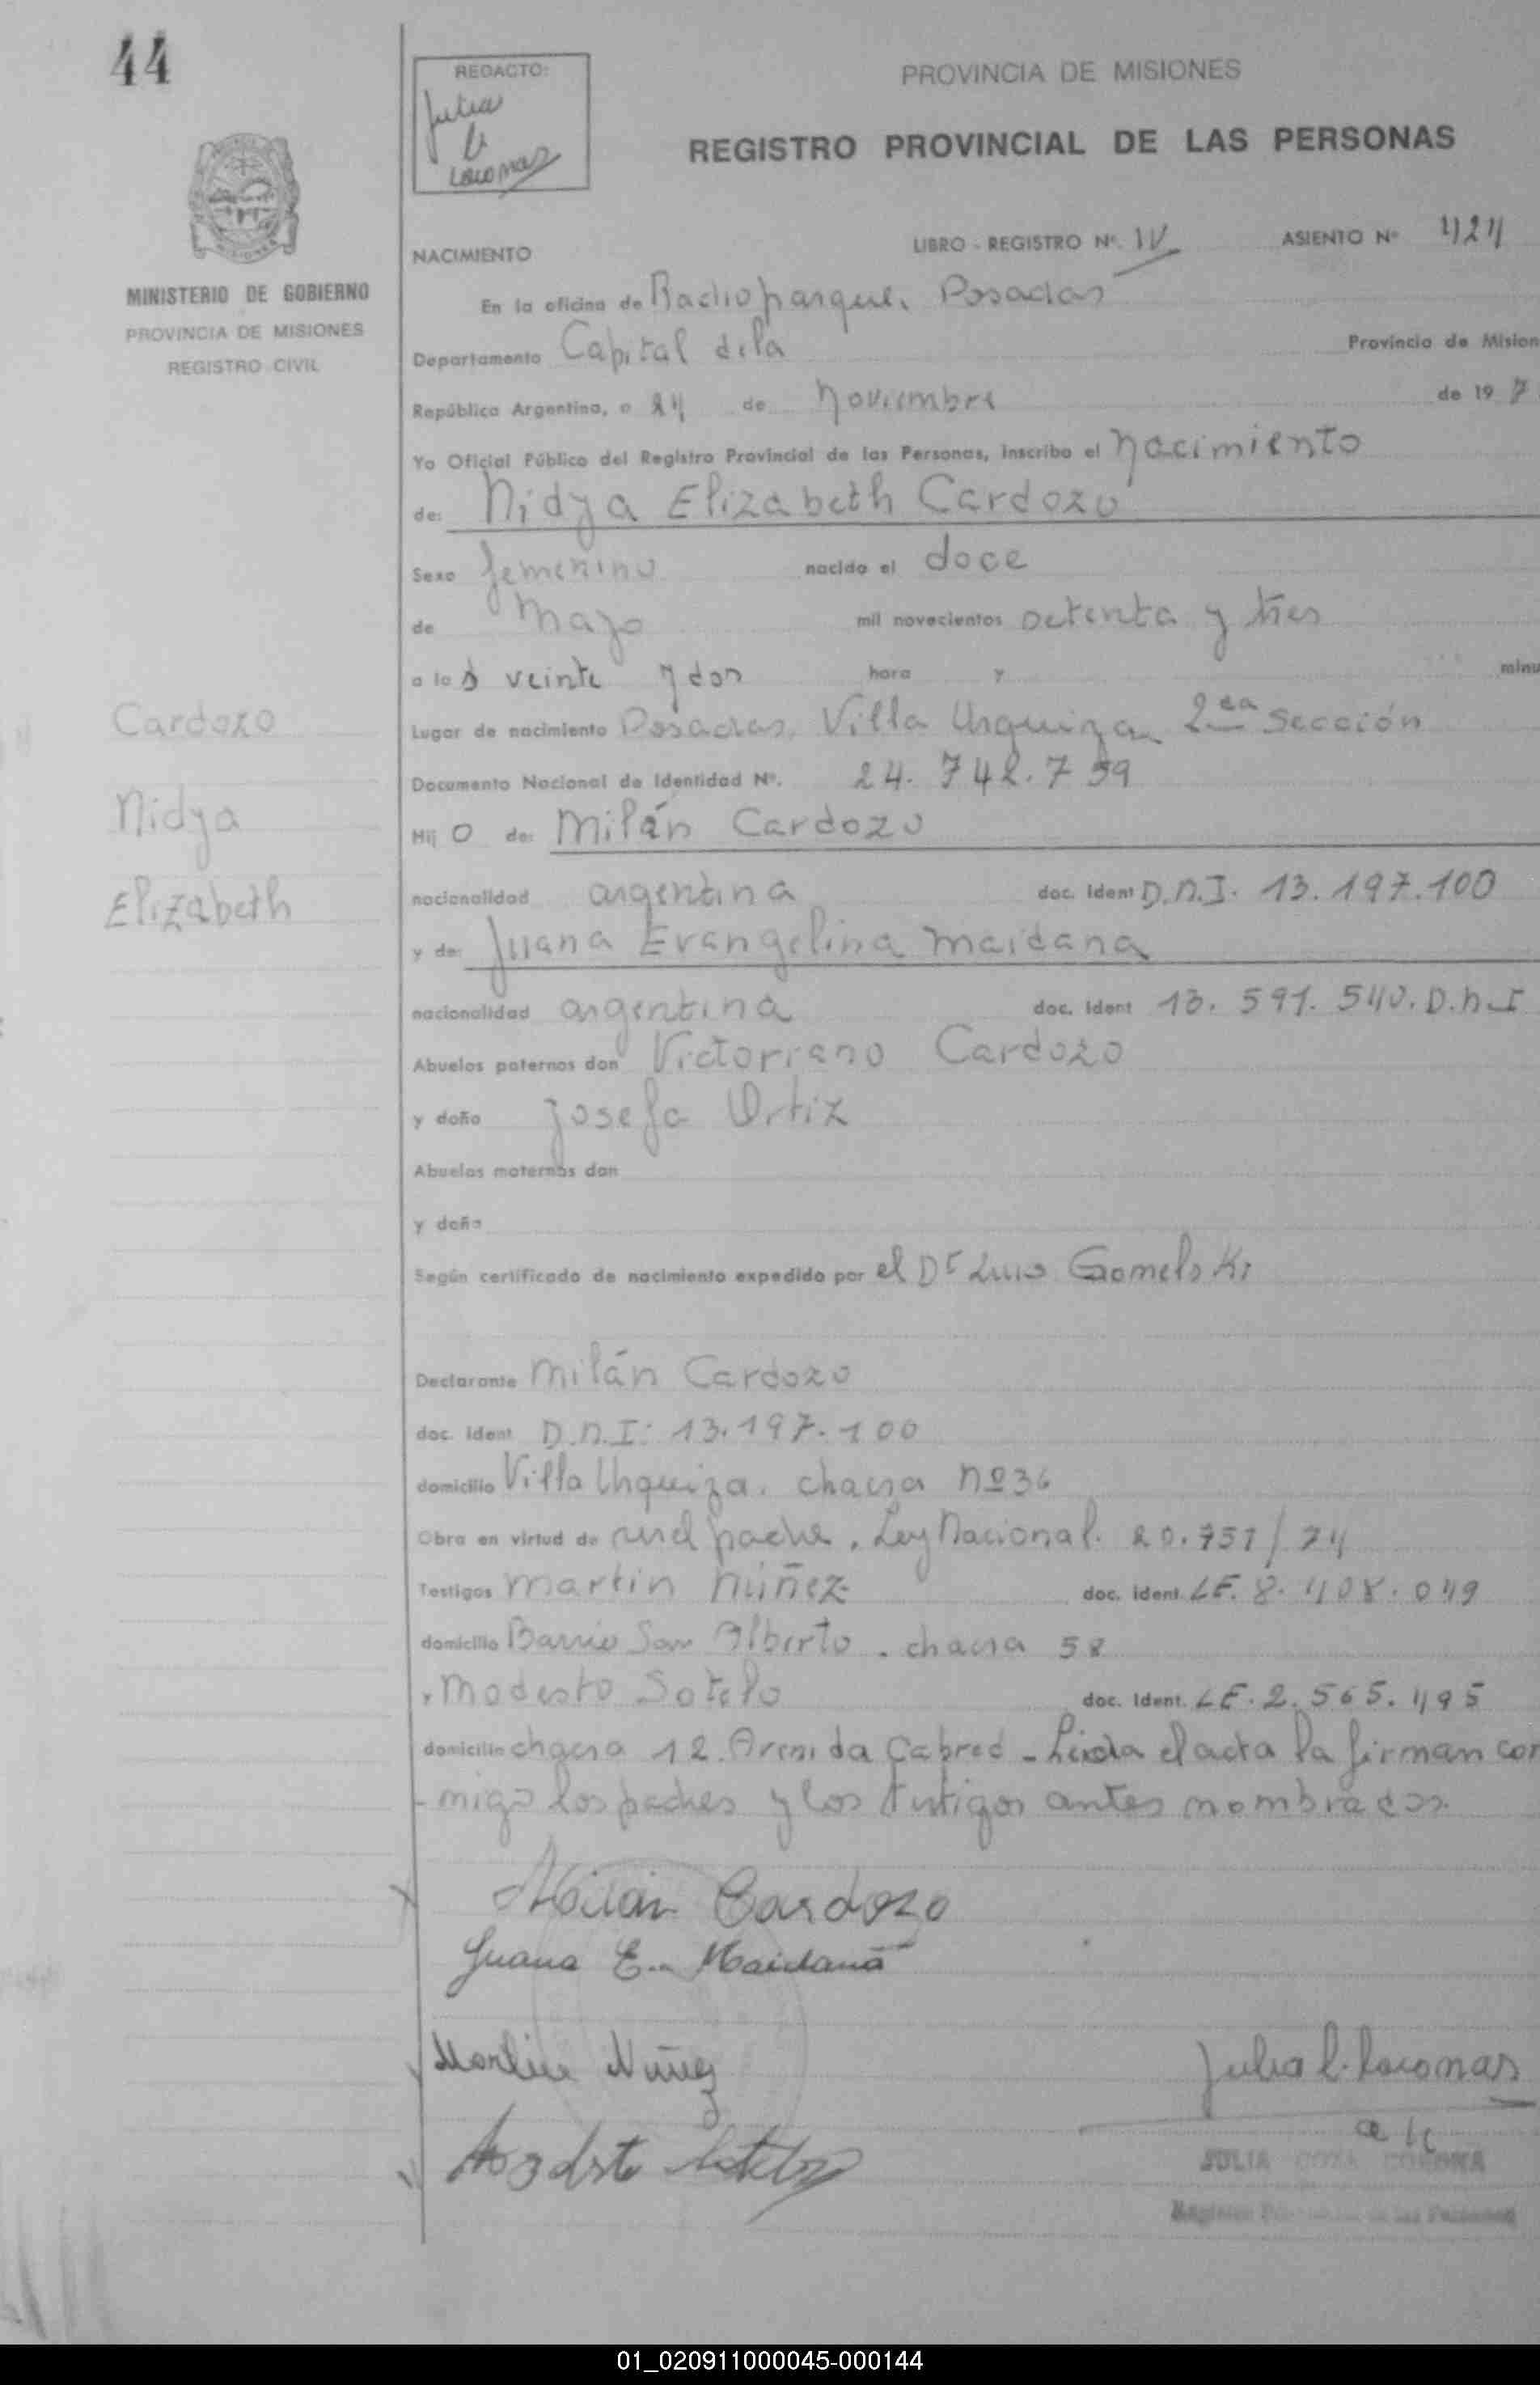 44
REDACTO:
Julia
PROVINCIA DE MISIONES
REGISTRO PROVINCIAL DE LAS PERSONAS
MINISTERIO DE GOBIERNO
PROVINCIA DE MISIONES
REGISTRO CIVIL
NACIMIENTO LIBRO - REGISTRO Nº. IV ASIENTO Nº 424
En la oficina de Radioparque. Posadas
Departamento Capital de la Provincia de Mision
República Argentina, a 24 de Noviembre de 19 7
Yo Oficial Público del Registro Provincial de las Personas, inscribo el Nacimiento
de: Nidya Elizabeth Cardozo
Sexo femenino nacido el doce
de Mayo mil novecientos setenta y tres
a las veinte y dos hora y minu
Lugar de nacimiento Posadas, Villa Urquiza 2da Sección
Documento Nacional de Identidad Nº. 24.742.759
Hijo de: Milán Cardozo
nacionalidad argentina doc. Ident D.N.I. 13.197.100
y de: Juana Evangelina Maidana
nacionalidad argentina doc. Ident 13.591.540. D.N.I
Abuelos paternos don Victoriano Cardozo
y doña Josefa Ortiz
Abuelos maternos don
y doña
Según certificado de nacimiento expedido por el Dr Luis Gomelski
Declarante Milán Cardozo
doc. Ident. D.N.I: 13.197.100
domicilio Villa Urquiza. chacra Nº 36
Obra en virtud de ser el padre. Ley Nacional. 20.751/74
Testigos Martin Núñez doc. ident. LE. 8.408.049
domicilio Barrio San Alberto. chacra 58
y Modesto Sotelo doc. Ident. LE. 2.565.495
domicilio chacra 12. Avenida Cabred - Leida el acta la firman con
-migo los padres y los testigos antes nombrados.
Cardozo
Nidya
Elizabeth
Milán Cardozo
Juana E. Maidana
Martin Núñez
Modesto Sotelo
Julia
JULIA
01_020911000045-000144